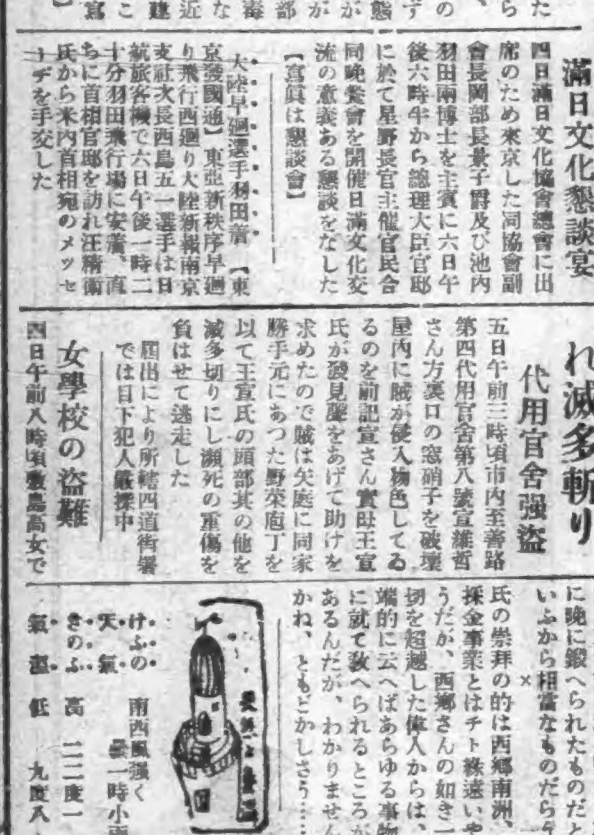 滿日文化懇談宴
四日滿日文化協會總會に出
席のため來京した同協會副
會長岡部長景子爵及び池内
羽田兩博士を主賓に六日午
後六時半から總理大臣官邸
に於て星野長官主催官民合
同晩餐會を開催日滿文化交
流の意義ある懇談をなした
【寫眞は懇談會】
大陸早廻選手羽田着 【東
京發國通】東亞新秩序早廻
り飛行西廻り大陸新報南京
支社次長西島五一選手は日
航旅客機で六日午後一時二
十分羽田飛行場に安着、直
ちに首相官邸を訪れ汪精衞
氏から米内首相宛のメッセ
ーヂを手交した
れ滅多斬り
代用官舍强盜
五日午前三時頃市内至善路
第四代用官舍第八號宣維哲
さん方裏口の窓硝子を破壞
屋内に賊が侵入物色してゐ
るのを前記宣さん實母王宣
氏が發見聲をあげて助けを
求めたので賊は矢庭に同家
勝手元にあつた野菜庖丁を
以て王宣氏の頭部其の他を
滅多切りにし瀕死の重傷を
負はせて逃走した
屆出により所轄四道街署
では目下犯人嚴探中
女學校の盜難
四日午前八時頃敷島高女で
に晩に鍛へられたものだと
いふから相當なものだらう
×
氏の崇拜の的は西鄕南洲、
採金事業とはチト緣遠いや
うだが、西鄕さんの如き一
切を超越した偉人からは、
端的に云へばあらゆる事物
に就て敎へられるところが
あるんだが、わかりません
かね、ともどかしさう……
けふの 南西風强く
天氣 曇一時小雨
きのふ 高 二二度一
氣溫 低 九度八